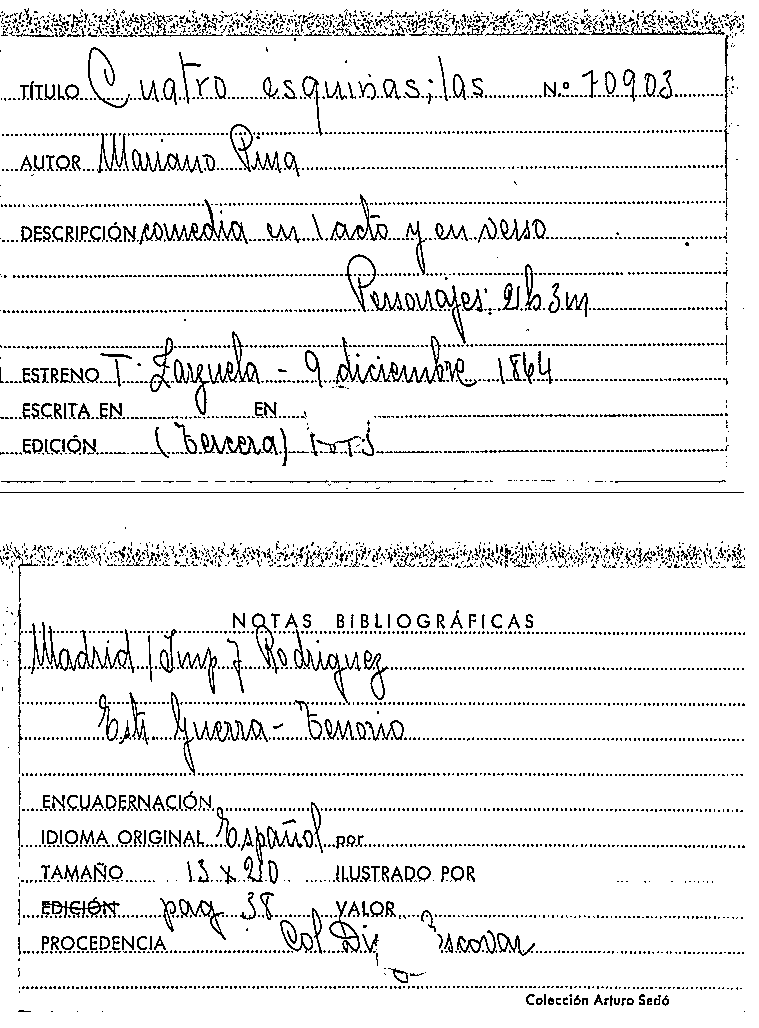 TÍTULO Cuatro esquinas; las N.º 70903
AUTOR Mariano Pina
DESCRIPCIÓN comedia en 1 acto y en verso
Personajes: 2h 3m
ESTRENO T. Zarzuela - 9 diciembre 1864
ESCRITA EN EN
EDICIÓN (Tercera)
NOTAS BIBLIOGRÁFICAS
Madrid / Imp J Rodriguez
Estr. Guerra - Tenorio
ENCUADERNACIÓN
IDIOMA ORIGINAL Español por
TAMAÑO 13 x 20 ILUSTRADO POR
EDICIÓN pag 38 VALOR
PROCEDENCIA Col
Colección Arturo Sedó